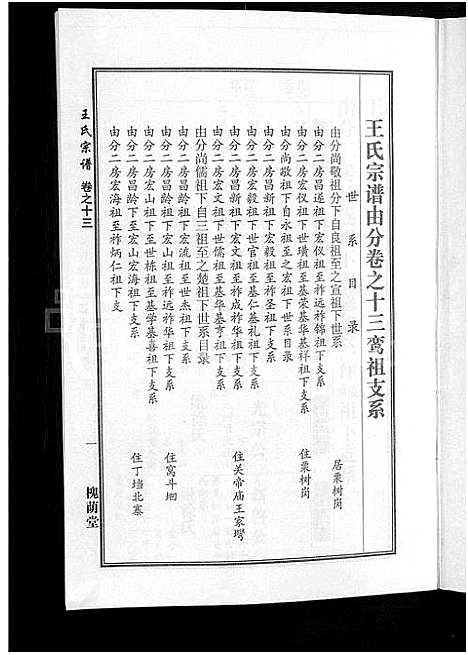 王氏宗谱由分卷之十三鸾祖支系
世系目录
由分尚敬祖分下自良祖至之宣祖下世系 居栗树岗
由分二房昌遂祖下宏仪祖至祚远祚锦祖下支系
由分二房宏仪祖下世璜祖至基荣基华基祥祖下世系 住栗树岗
由分尚敬祖下自永祖至之宏祖下世系目录
由分二房昌新祖下宏毅祖至祚圣祖下支系
由分二房宏毅祖下世官祖至基仁基礼祖下支系
由分二房昌新祖下宏文祖至祚成祚华祖下支系 住关帝庙王家塆
由分二房宏文祖下世儒祖至基华基亨祖下世系
由分尚儒祖下自三祖至之楚祖下世系目录
由分二房昌龄祖下宏流祖至世杰祖下支系
由分二房昌龄祖下宏山祖至祚远祚华祖下支系 住窝斗垇
由分二房宏山祖下至世栋祖至基学基喜祖下支系
由分二房昌龄祖下至宏山宏海祖下支系 住丁垱北寨
由分二房宏海祖至祚炳仁祖下支
王氏宗谱 卷之十三
一
槐荫堂